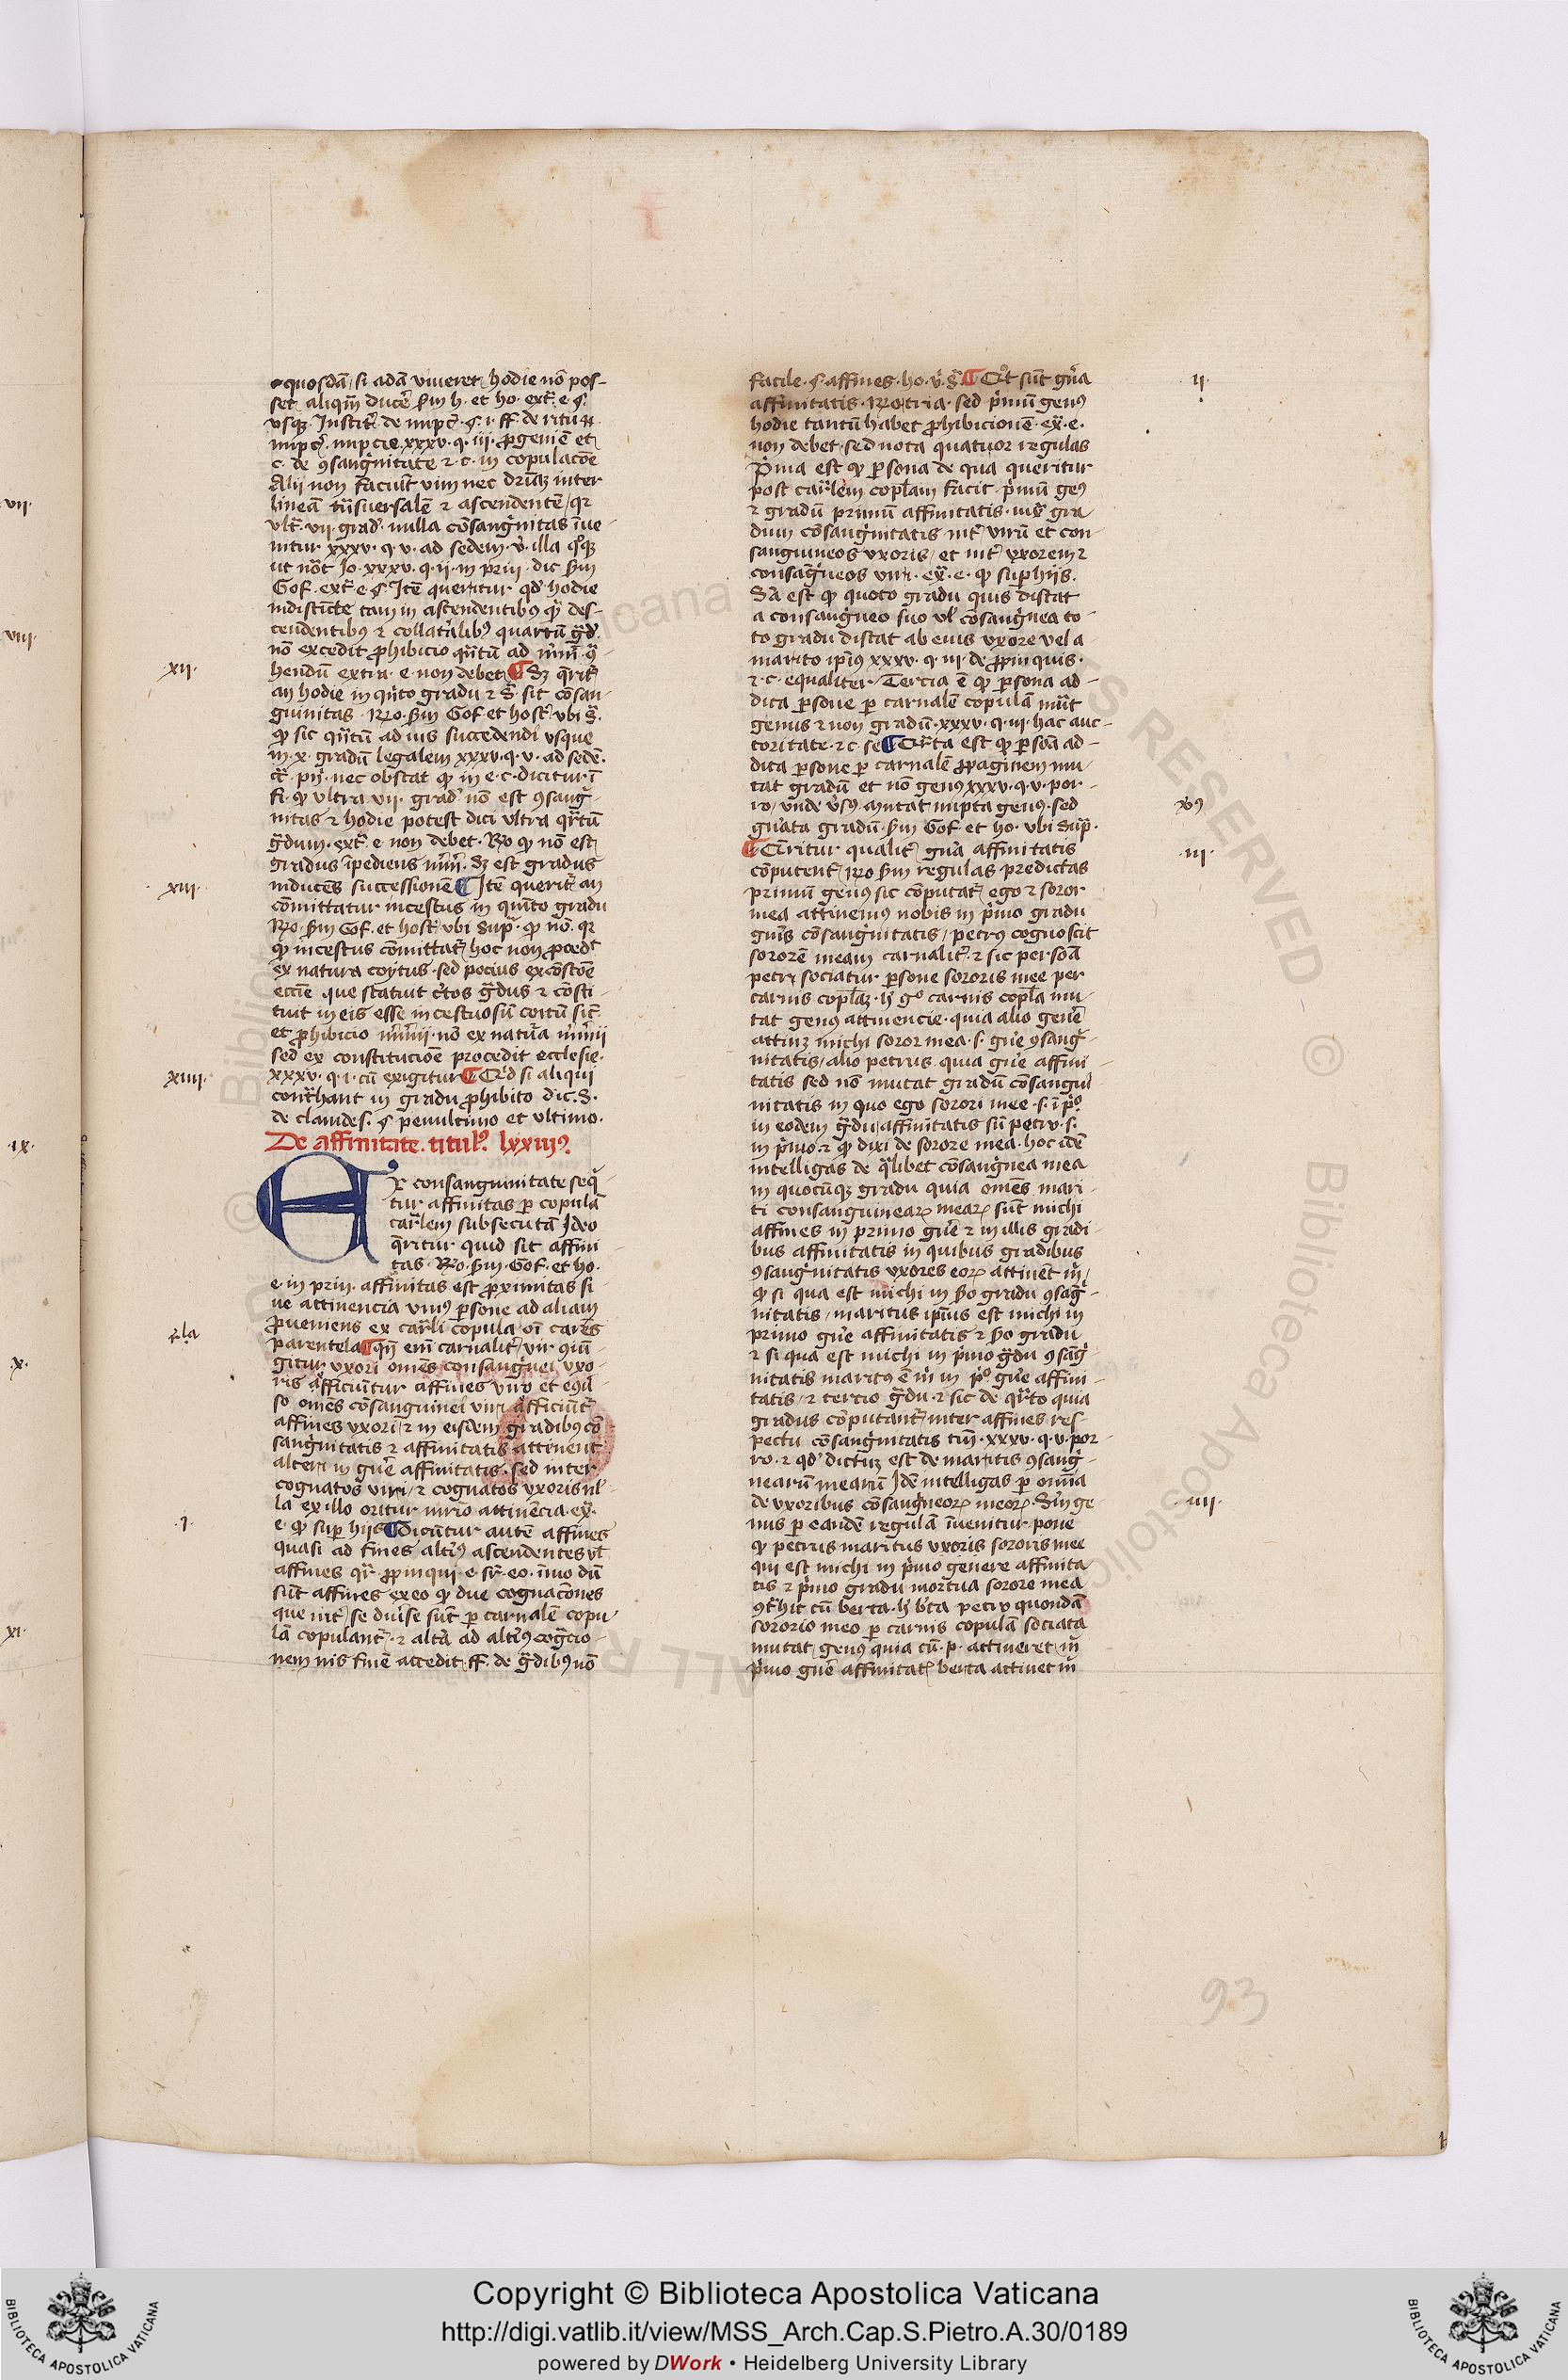 quosdā si adā viueret hodie nō pos-
set aliqm̄ ducē scdm h. et ho. ext̄. e. §.
vsqꝫ. Instit̄. de nupc̄. §. i. ff. de ritu
nupc̄. nupcie xxxv. q. iii. ꝓgeniē et
c. de ꝯsangͥnitate ⁊ c. in copulacōe
Alii non faciūt vim nec dr̄iaꝫ inter
lineā tn̄suersalē ⁊ ascendentē qꝛ
vlt̄. vii. grad᷒ nulla cōsangͥnitas īue-
nitur xxxv. q. v. ad sedem. v̄. illa qͦqꝫ
ut nōt Jo. xxxv. q. ii. in prin. dic scdm
Gof. ext̄. e. §. Itē queritur qd̓ hodie
indistīcte tam in ascendentibꝰ qͣ des-
cendentibꝰ ⁊ collatͣlibꝰ quartū gͣd᷒
nō excedit ꝓhibicio qͣntū ad mr̄iū ꝯͣ-
hendū extra. e. non debet ¶ Sꝫ qͥrit᷒
an hodie in qͥnto gradu ⁊ sͣ. sit cōsan-
guinitas. Rꝰo. scdm Gof. et host᷒. vbi sͣ.
ꝙ sic qͣntū ad ius succedendi vsque
in. x. gradū legalem xxxv. q. v. ad sedē.
nec obstat ꝙ in e. c. dicitur ī
fi. ꝙ vltra vii. grad᷒ nō est ꝯsangͥ-
nitas ⁊ hodie potest dici vltra qͣrtū
gͣdum. ext̄. e. non debet. Rꝰo ꝙ nō est
gradus īpediens mr̄iū. sꝫ est gradus
inducēs successionē ¶ Itē querit᷒ an
cōmittatur incestus in quīto gradu
Rꝰo. scdm Gof. et host᷒. vbi supͣ. ꝙ nō. qꝛ
ꝙ incestus cōmittat᷒ hoc non ꝓced᷒t
ex natura coytus. sed pocius ex cōstōe
ecc̄ie que statuit c̓tos gͣdus ⁊ cōsti-
tuit in eis esse incestuosū coitū sic̄
et ꝓhibicio mr̄ionii. nō ex natura mr̄ionii
sed ex constitucioē procedit ecclesie.
xxxv. q. i. cū exigitur ¶ Qͥd si aliqui
contͣhant in gradu ꝓhibito dic. S.
de clandes. §. penultimo et ultimo.
De affinitate. titulꝰ. lxxiiiꝰ.
Ex consanguinitate seqͥ-
tur affinitas ꝑ copulā
carͣlem subsecutā Ideo
qͥritur quid sit affini-
tas. Rꝰo. scdm. Gof. et ho.
e. in prin. affinitas est ꝓximitas si-
ue attinencia vniꝰ ꝑsone ad aliam
ꝓueniens ex carͣli copula. oī carēs
parentela ¶ qn̄ em̄ carnalit᷒ vir ꝯiū-
gitur vxori omēs consangͥnei vxo-
ris efficiūtur affines viro et eꝯu᷒-
so omēs cōsanguinei viri efficiūt᷒
affines vxori ⁊ in eisdem gradibꝰ cō-
sangͥnitatis ⁊ affinitatis attinent
alteri in gn̄e affinitatis. sed inter
cognatos viri ⁊ cognatos vxoris nl̄-
la ex illo oritur mr̄io attinēcia. ext̄.
e. ꝙ sup hiis ¶ Dicūtur autē affines
quasi ad fines altͥꝰ ascendentes vl̄
affines qͣsi ꝓpinqui. e. immo dn̄r
sūt affines ex eo ꝙ due cognacōnes
que int᷒ se diuise sūt ꝑ carnalē copu-
lā copulant᷒. ⁊ altͣa ad altͥꝰ cogͣcio-
nem nis finē accedit. ff. de gͣdibꝰ nō
facile. §. affines. ho. v. sͣ. ¶ Qͦt sūt gn̄a
affinitatis. Rꝰo tria. sed pͥmū genꝰ
hodie tantū habet ꝓhibicionē. ext̄. e.
non debet. sed nota quatuor regulas
Pͥma est ꝙ ꝑsona de qua queritur
post carͣlem copl̄am facit pͥmū genꝰ
⁊ gradū primū affinitatis. iux᷒ gra-
dum cōsangͥnitatis int᷒ virū et con-
sanguineos vxoris et int᷒ vxorem ⁊
consangͥneos viri. ext̄. e. ꝙ sup hiis.
Scͣda est ꝙ quoto gradu quis distat
a consangͥneo suo ul̄ cōsangͥnea to-
to gradu distat ab eius vxore vel a
marito ipsiꝰ xxxv. q. iii. de ꝓpinquis.
⁊ c. equaliter. Tercia ē ꝙ ꝑsona ad-
dita ꝑsone ꝑ carnalē copulā mūt
genus ⁊ non gradū. xxxv. q. iii. hac auc-
toritate. ⁊ c. se ¶ Qͣrta est ꝙ ꝑsōa ad-
dita ꝑsone ꝑ carnalē ꝓpaginem mu-
tat gradū et nō genꝰ xxxv. q. v. por-
ro. vnde v̓sꝰ. Mutat nupta genꝰ. sed
gn̄ata gradū. scdm Gof. et ho. vbi supͣ.
¶ Qͥritur qualit᷒ gn̄a affinitatis
cōputent᷒. Rꝰo scdm regulas predictas
primū genꝰ sic cōputat᷒. ego ⁊ soror
mea attinemꝰ nobis in pͥmo gradu
gn̄is cōsangͥnitatis. petrꝰ cognoscit
sororē meam carnalit᷒. ⁊ sic persōa
petri sociatur ꝑsone sororis mee per
carnis copl̄aꝫ. hͨ gͦ carnis copl̄a mu-
tat genꝰ attinencie. quia alio gen̄e
attinꝫ michi soror mea. s. gn̄e ꝯsangͥ-
nitatis. alio petrus. quia gn̄e affini-
tatis sed nō mutat gradū cōsangui-
nitatis in quo ego sorori mee. s. ī pͥº.
in eodem gͣdu affinitatis sū petro. s.
in pͥmo. ⁊ ꝙ dixi de sorore mea. hoc idē
intelligas de qͣlibet cōsangͥnea mea
in quocūqꝫ gradu quia omēs mari-
ti consanguinearꝝ mearꝝ sūt michi
affines in primo gn̄e ⁊ in illis gradi-
bus affinitatis in quibus gradibus
ꝯsangͥnitatis vxores eorꝝ attinēt mͥ
ꝙ si qua est michi in scdo gradu ꝯsagͥ-
nitatis. maritus ipsius est michi in
primo gn̄e affinitatis ⁊ scdo gradu
⁊ si qua est michi in pͥmo gͣdu ꝯsāgͥ-
nitatis maritꝰ ē mͥ in pͥº gn̄e affini-
tatis. ⁊ tercio gͣdu. ⁊ sic de qͣrto quia
gradus cōputant᷒ inter affines res-
pectu cōsangͥnitatis tm̄. xxxv. q. v. por-
ro. ⁊ qd̓ dictuꝫ est de maritis ꝯsangͥ-
nearū mearū Idē intelligas ꝑ omīa
de vxoribus cōsangͥneorꝝ meorꝝ. Scdm ge-
nus ꝑ eandē regulā īuenitur. pone
ꝙ petrus maritus vxoris sororis mee
qui est michi in pͥmo genere affinita-
tis ⁊ pͥmo gradu mortua sorore mea
ꝯtͣhit cū berta. hͨ bͬta petro quondā
sororio meo ꝑ carnis copulā sociata
mutat genus quia cū. p. attineret mͥ
pͥmo gn̄e affinitatꝭ berta attinet mͥ
vii.
viii.
ix.
x.
xi.
xii.
xiii.
xiiii.
.i.
ii.
v̓sꝰ
iii.
iiii.
93
Copyright © Biblioteca Apostolica Vaticana
http://digi.vatlib.it/view/MSS_Arch.Cap.S.Pietro.A.30/0189
powered by DWork • Heidelberg University Library
BIBLIOTECA APOSTOLICA VATICANA
BIBLIOTECA APOSTOLICA VATICANA